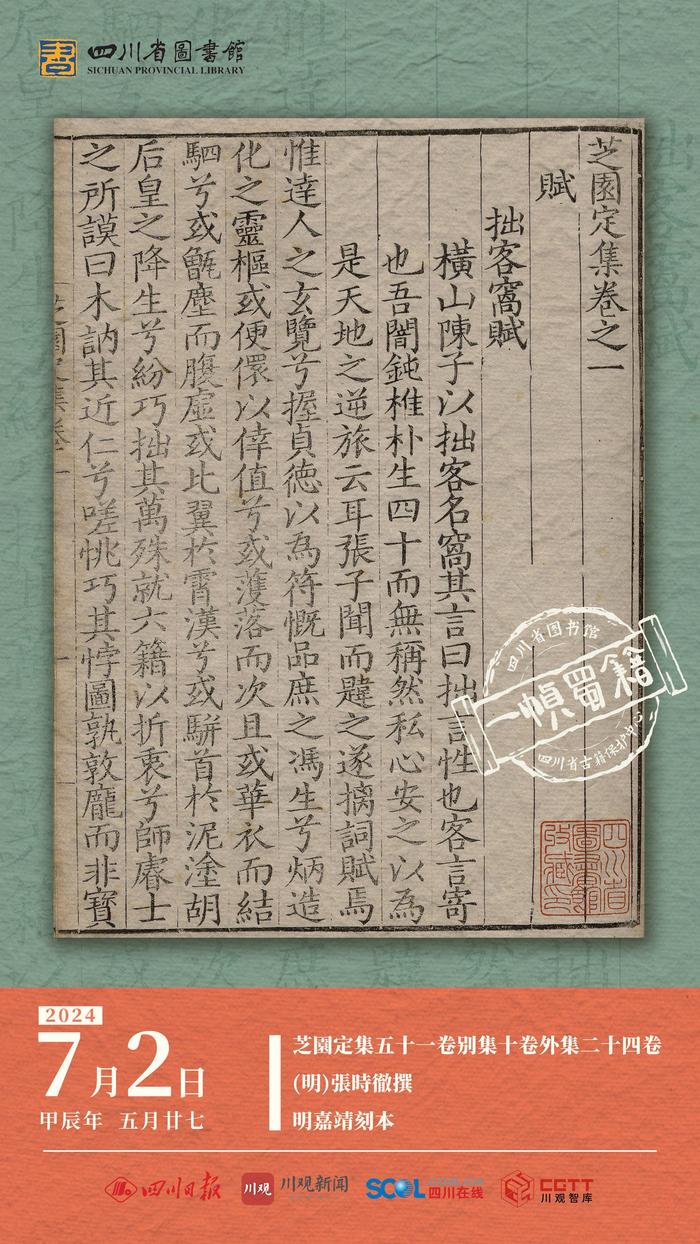 四川省圖書館
SICHUAN PROVINCIAL LIBRARY
芝園定集卷之一
賦
拙客窩賦
橫山陳子以拙客名窩其言曰拙言性也客言寄
也吾闇鈍椎朴生四十而無稱然私心安之以為
是天地之逆旅云耳張子聞而韙之遂摛詞賦焉
惟達人之玄覽兮握貞德以為符慨品庶之馮生兮炳造
化之靈樞或便儇以倖值兮或濩落而次且或華衣而結
駟兮或甑塵而腹虛或比翼於霄漢兮或駢首於泥塗胡
后皇之降生兮紛巧拙其萬殊就六籍以折衷兮師睿士
之所謨曰木訥其近仁兮嗟恌巧其悖圖孰敦龐而非寶
四川省图书馆
一幀蜀籍
四川省古籍保护中心
四川省
圖書館
收藏印
2024
7月2日
甲辰年 五月廿七
芝園定集五十一卷别集十卷外集二十四卷
(明)張時徹撰
明嘉靖刻本
四川日报
川观
川观新闻
SCOL
四川在线
CGTT
川观智库